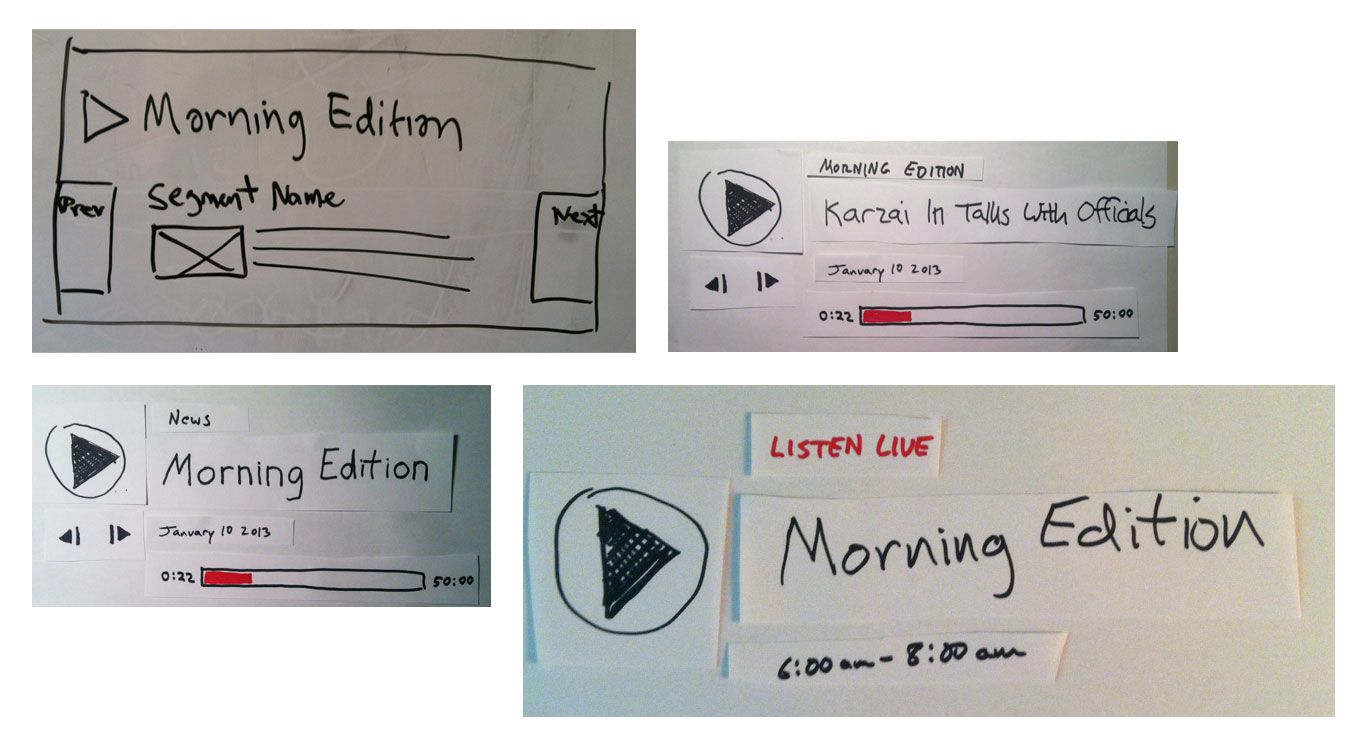 Morning Edition
Segment Name
Prev
Next
MORNING EDITION
Karzai In Talks With Officials
January 10 2013
0:22
50:00
News
Morning Edition
January 10 2013
0:22
50:00
LISTEN LIVE
Morning Edition
6:00 am - 8:00 am